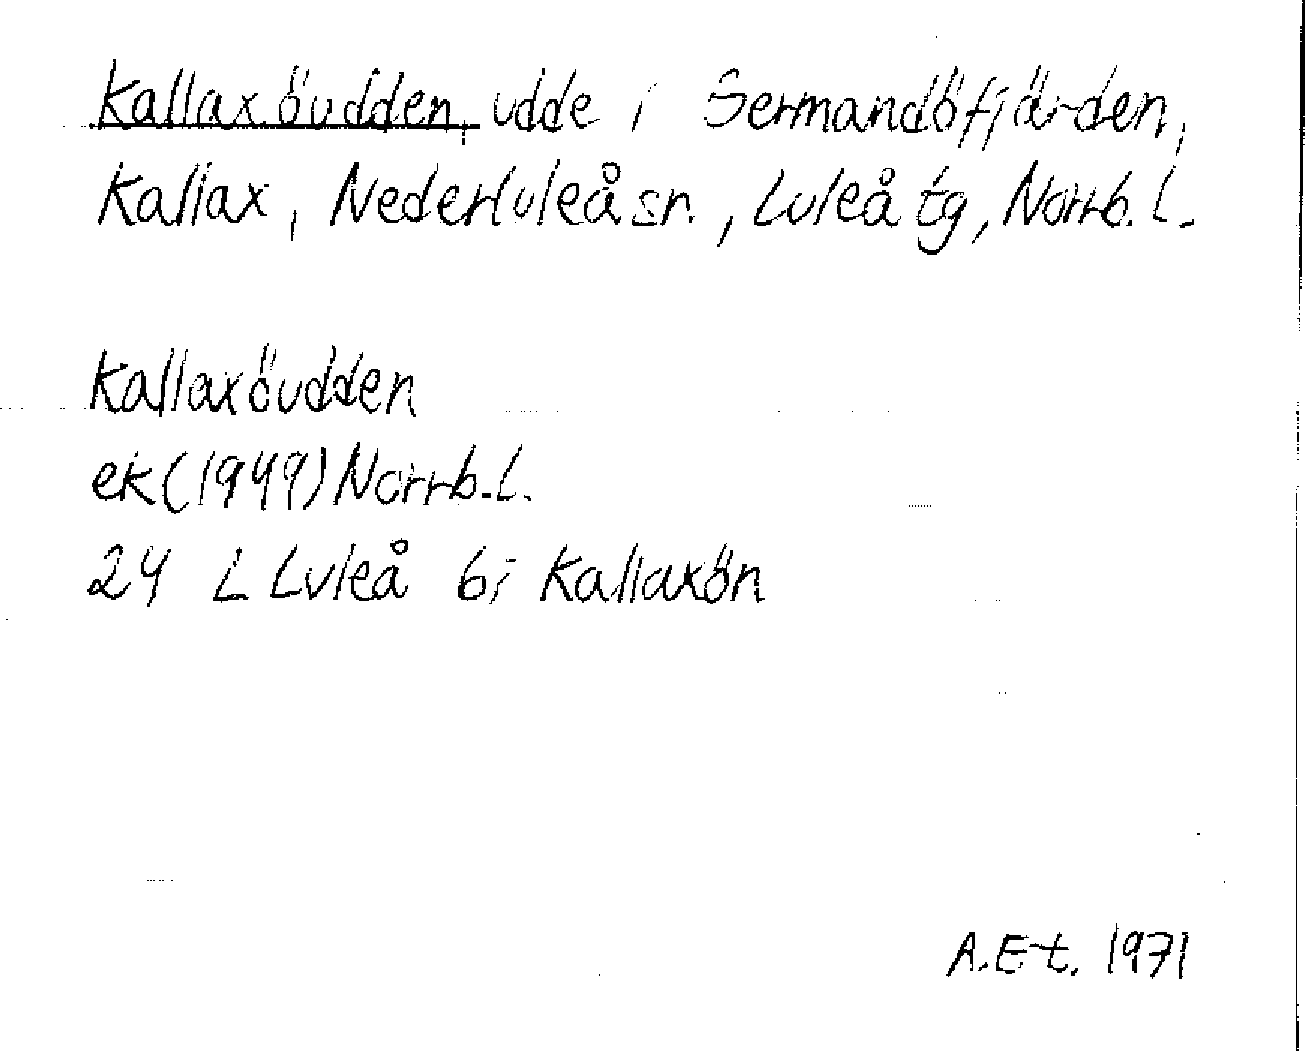 Kallaxöudden, udde i Sermandöfjärden,
Kallax, Nederluleå sn., Luleå tg, Norrb. l.
Kallaxöudden
ek (1949) Norrb. l.
24 L Luleå 6i Kallaxön
A.E-t. 1971